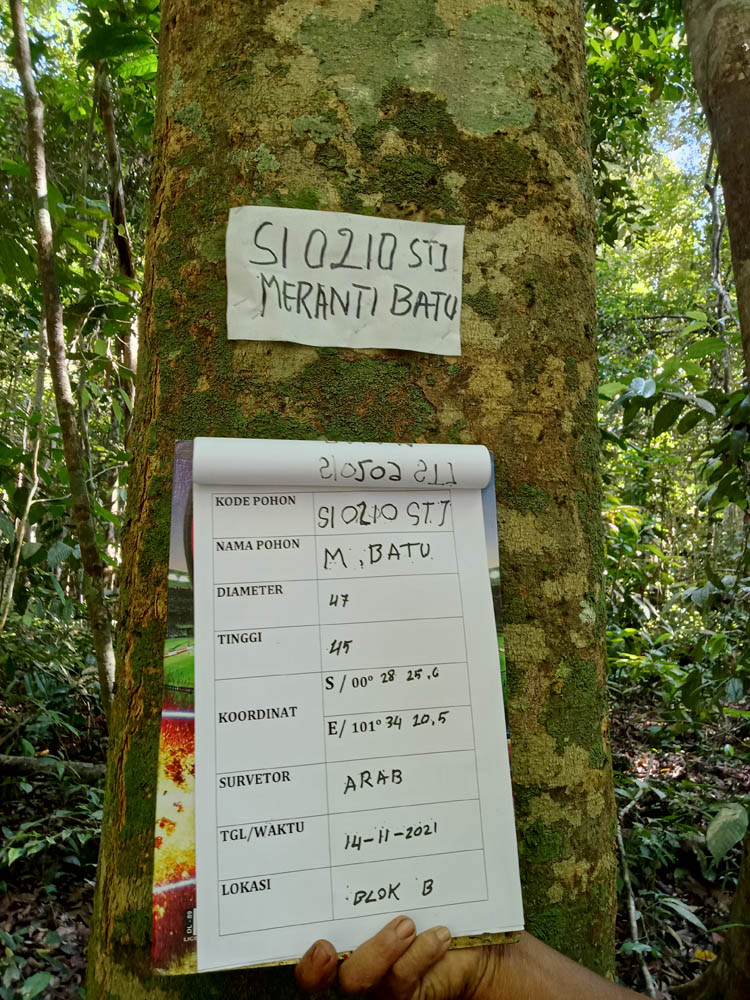 SI 0210 STJ
MERANTI BATU
KODE POHON SI 0210 STJ
NAMA POHON M. BATU
DIAMETER 47
TINGGI 45
KOORDINAT S / 00° 28 25,6
E/ 101° 34 20,5
SURVETOR ARAB
TGL/WAKTU 14-11-2021
LOKASI BLOK B